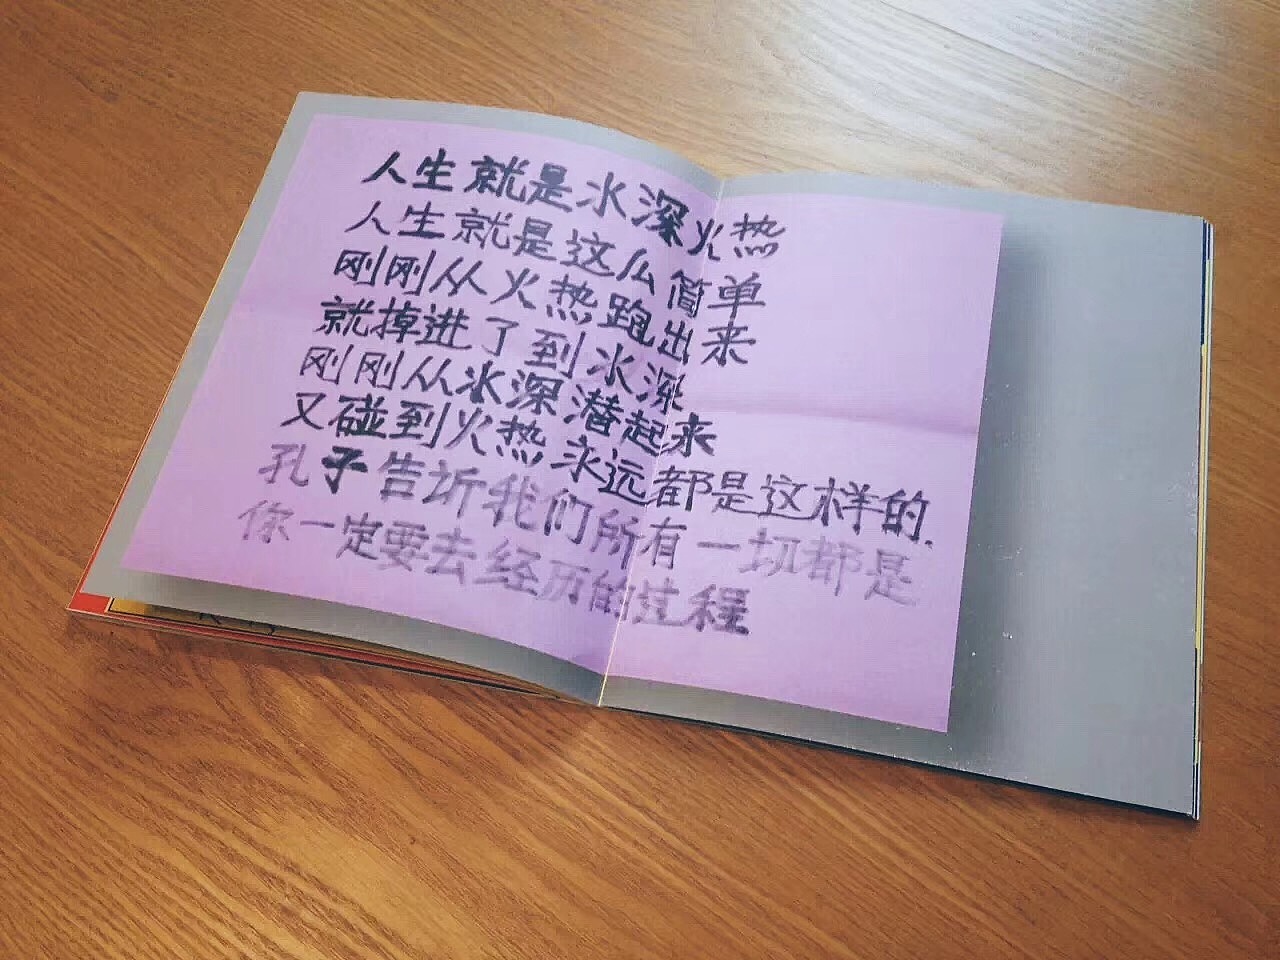 人生就是水深火热
人生就是这么简单
刚刚从火热跑出来
就掉进了到水深
刚刚从水深潜起来
又碰到火热永远都是这样的.
孔子告诉我们所有一切都是
你一定要去经历的过程